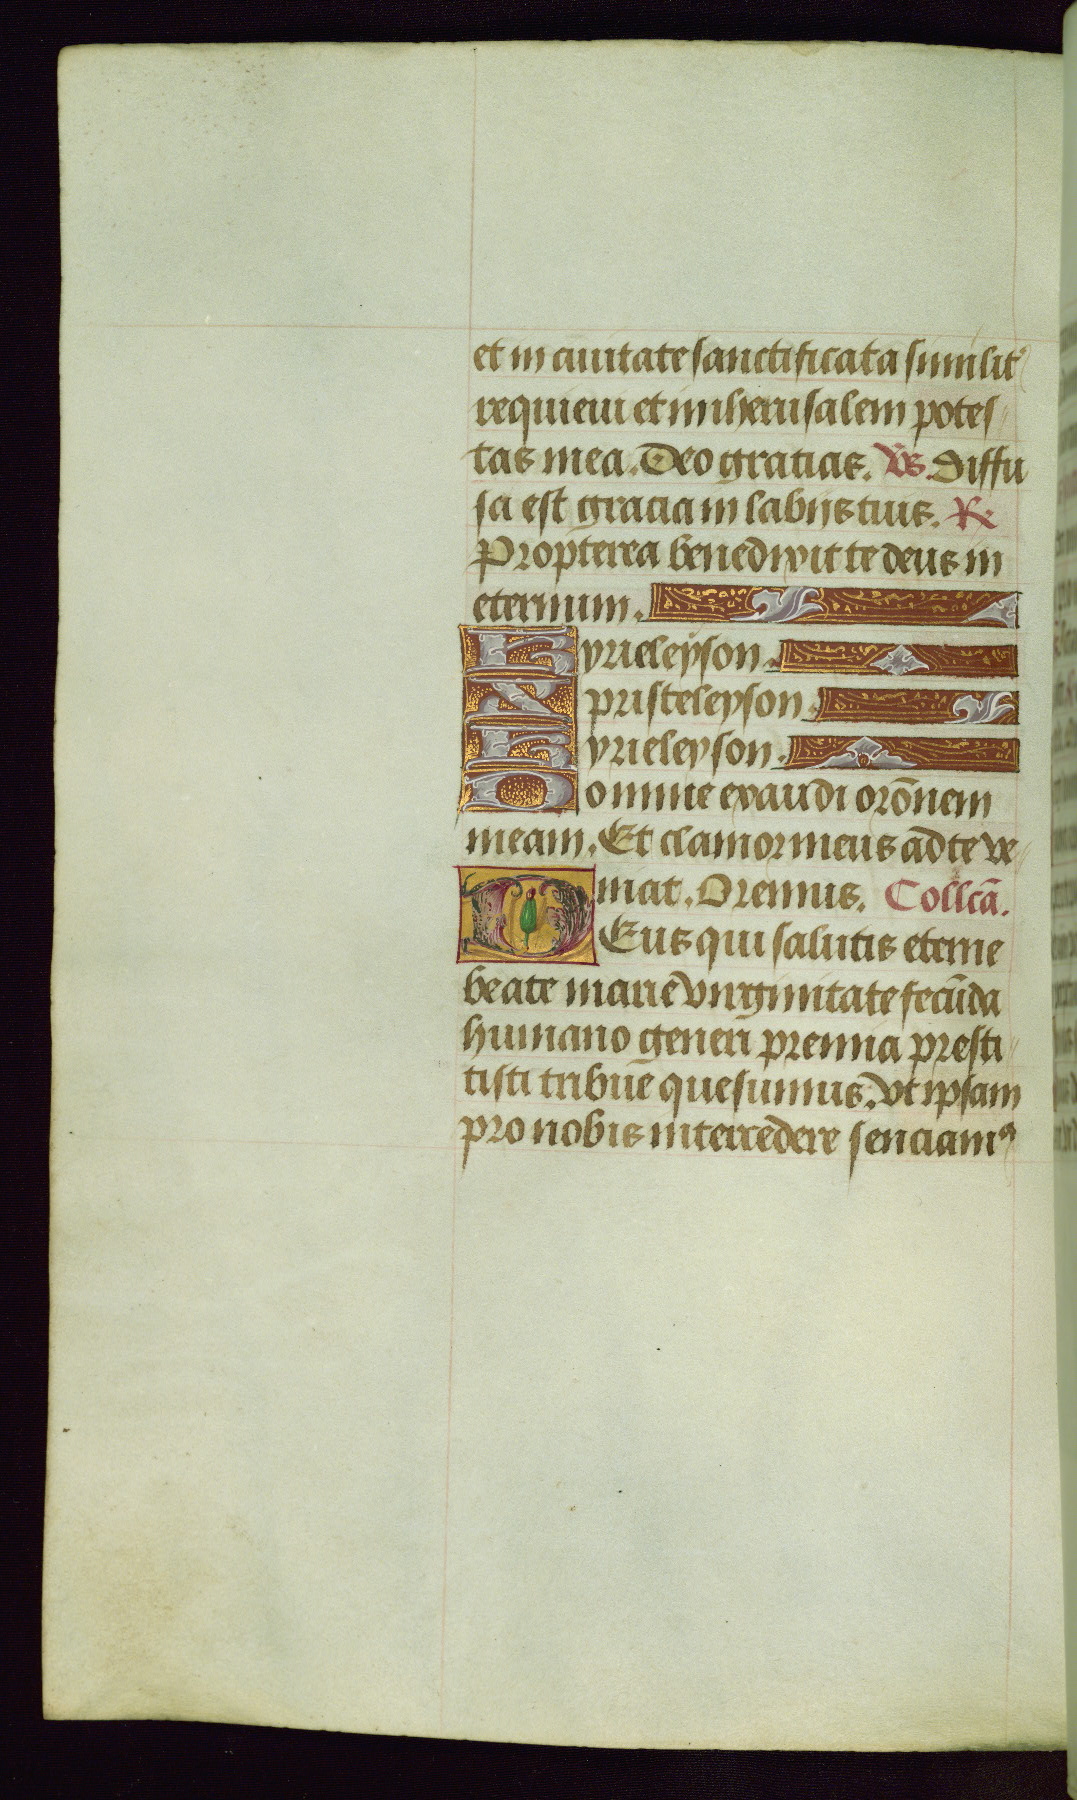 et in ciuitate sanctificata similit᷑
requieui et in iherusalem potes
tas mea. Deo gratias. Vs. Diffu
sa est gracia in labijs tuis. Re
Propterea benedixit te deus in
eternum.
Kyrieleyson.
Xpristeleyson.
Kyrieleyson.
Domine exaudi orōnem
meam. Et clamor meus ad te ve
niat. Oremus. Collcā.
DEus qui salutis eterne
beate marie virginitate fecūda
humano generi premia presti
tisti tribue quesumus. vt ipsam
pro nobis intercedere senciamꝰ